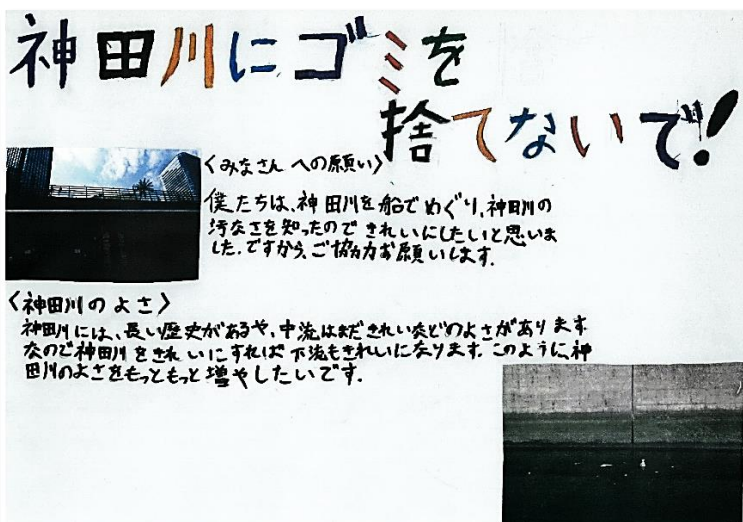 神田川にゴミを
捨てないで!
〈みなさんへの願い〉
僕たちは、神田川を船でめぐり、神田川の
汚なさを知ったのできれいにしたいと思いま
した。ですから、ご協力お願いします。
〈神田川のよさ〉
神田川には、長い歴史があるや、中流はまだきれいなどのよさがあります
なので神田川をきれいにすれば下流もきれいになります。このように、神
田川のよさをもっともっと増やしたいです。